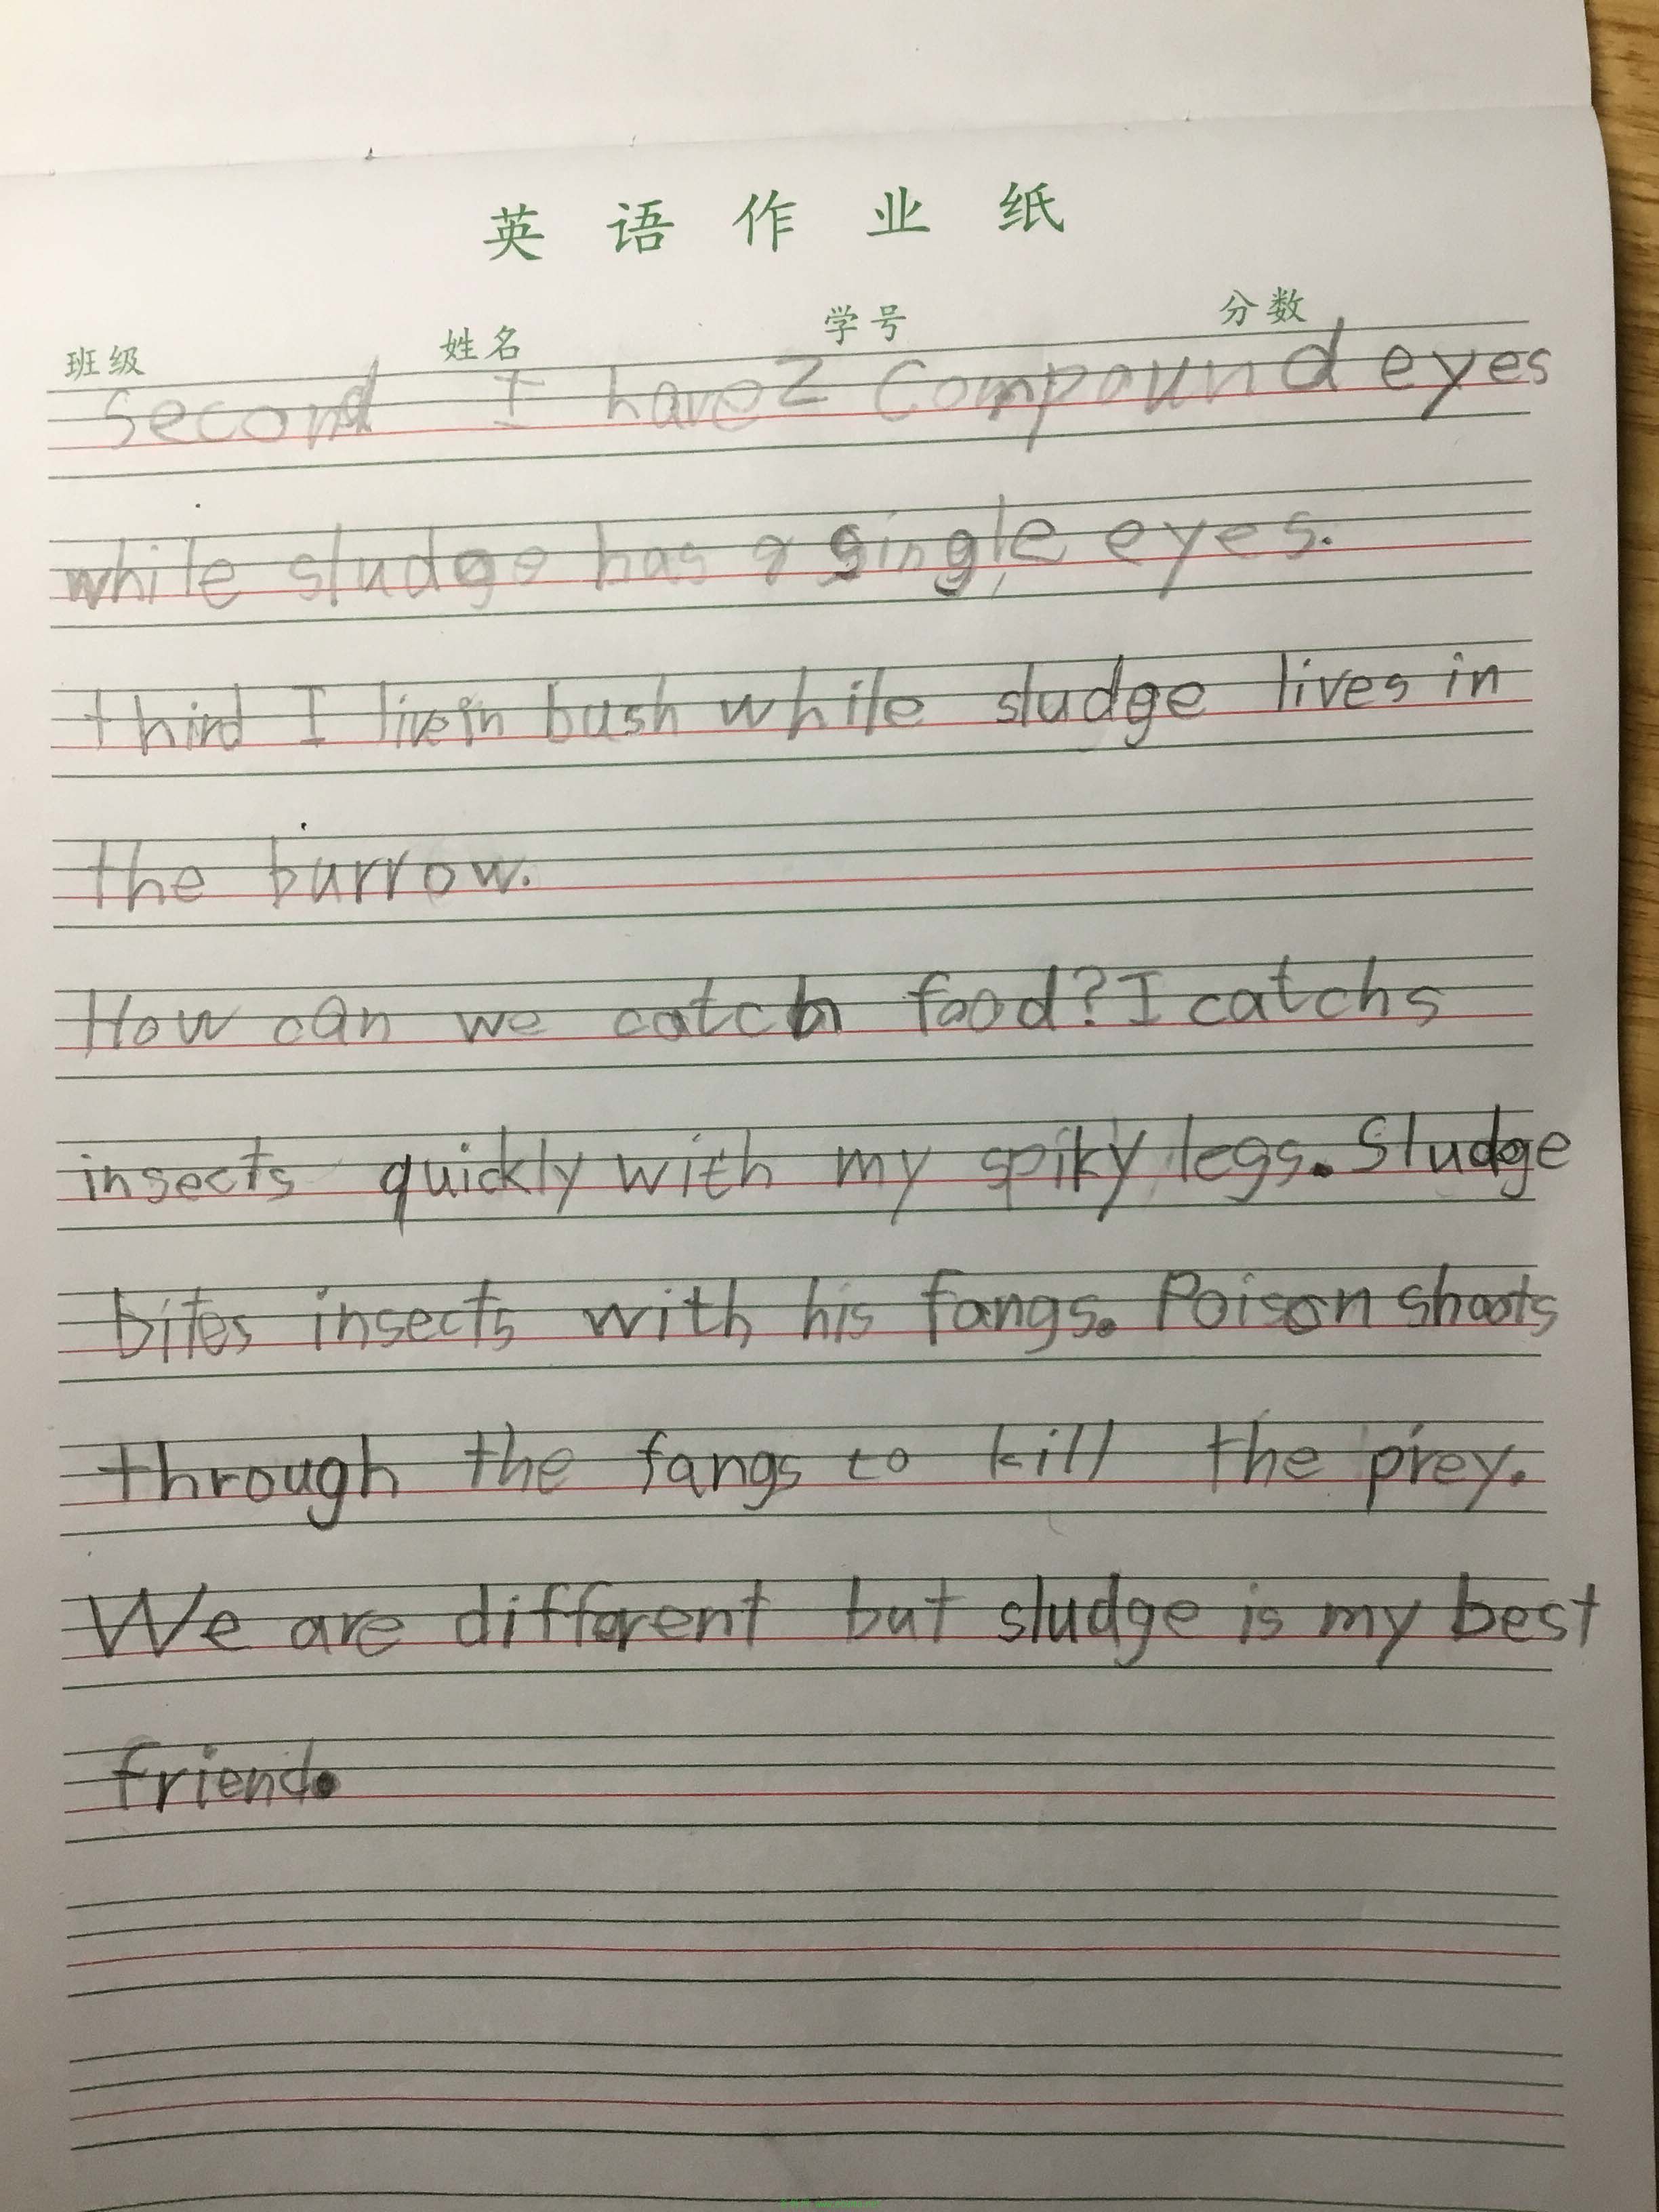 英语作业纸
班级 姓名 学号 分数
Second I have 2 Compound eyes
while sludge has a single eyes.
third I live in bush while sludge lives in
the burrow.
How can we catch food? I catchs
insects quickly with my spiky legs. Sludge
bites insects with his fangs. Poison shoots
through the fangs to kill the prey.
We are different but sludge is my best
friend.